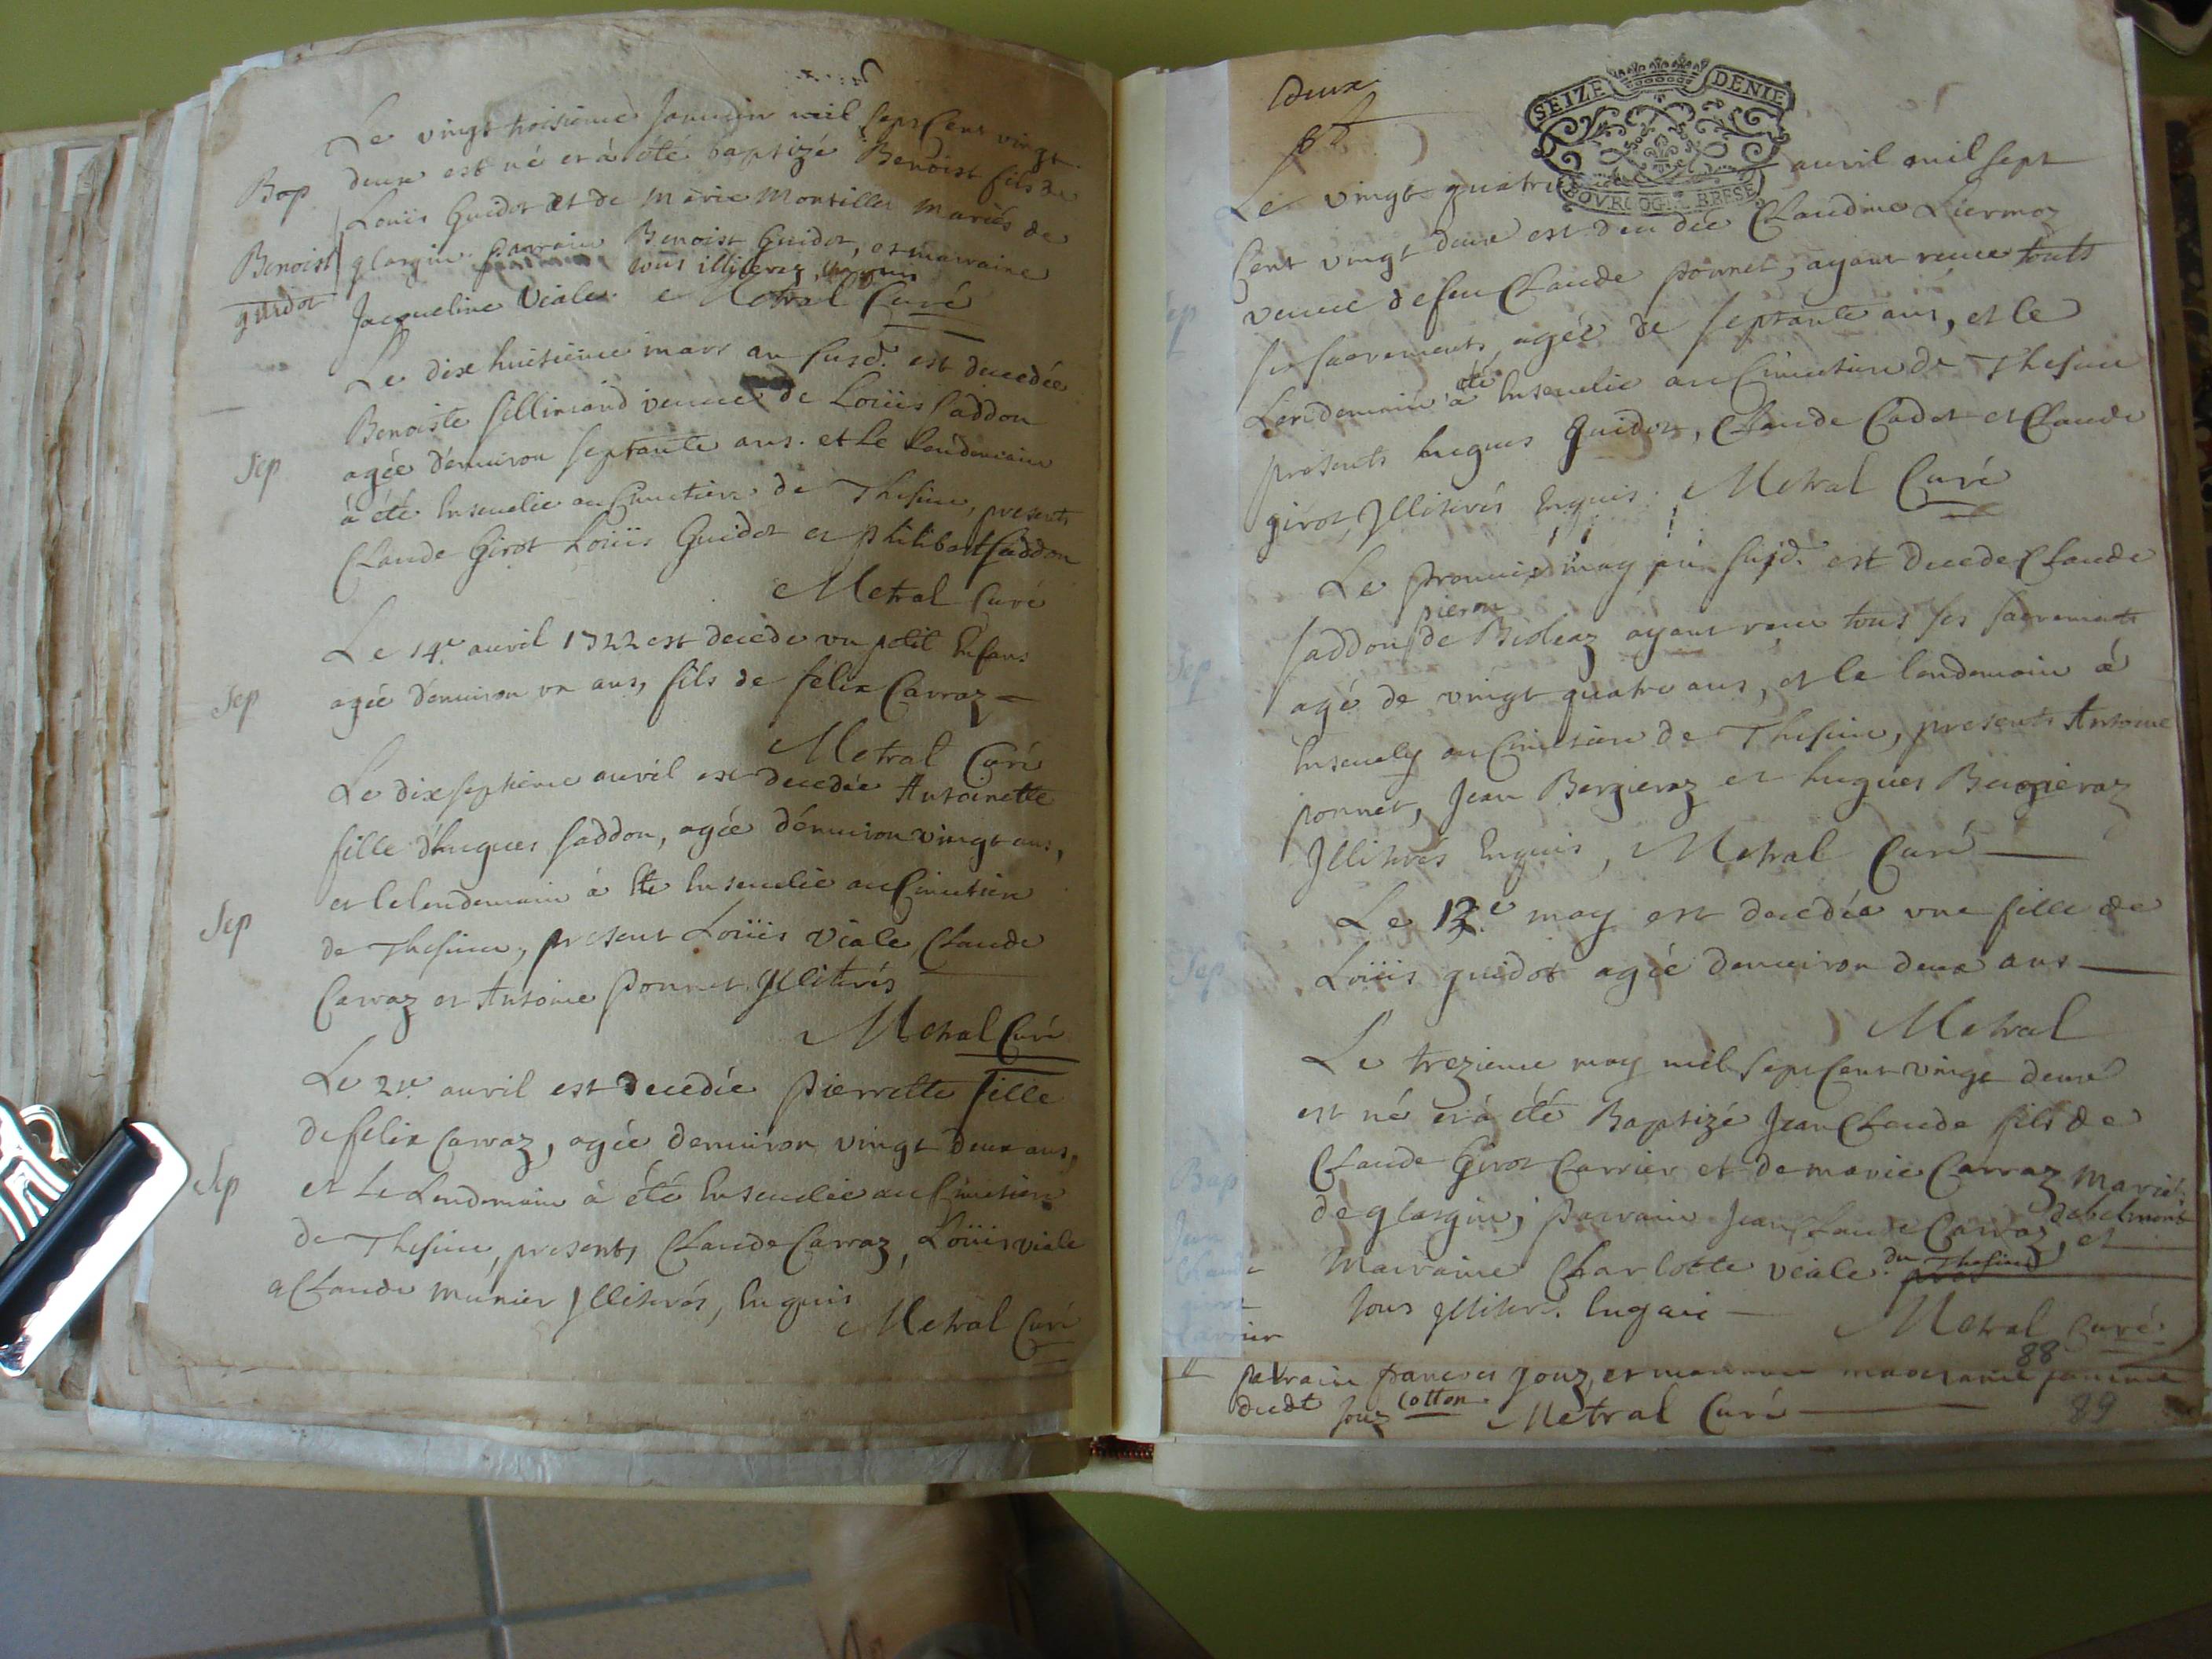 Le vingt troisieme Janvier mil sept Cent vingt
Bap deux est né et à été baptizé Benoist fils de
Loüis Guidot et de Marie Montillet Mariés de
Benoist glargin. parrain Benoist Guidot, et marraine
guidot tous illiterez enquis
Jacqueline Viale. Metral Curé
Le dix huitieme mars an susd. est decedée
Benoiste fillimand veuve de Loüis faddon
Sep agée d'enuiron septante ans. et Le Lendemain
à été Enseuelie au Cimetiere de Thesieu, presents
Claude Girot Loüis Guidot et philibert faddon
Metral Curé
Le 14.e auril 1722 est decede vn petit Enfant
Sep agée d'enuiron vn ans, fils de felix Carraz
Metral Curé
Le dix septieme auril est decedée Antoinette
fille d'hugues faddon, agée d'enuiron vingt ans,
et le lendemain à ete Enseuelie au Cimetiere
Sep de Thesieu, present Loüis viale, Claude
Carraz et Antoine ponnet Illiterés
Metral Curé
Le 21.e auril est decedée pierrette fille
de felix Carraz, agée denuiron vingt deux ans,
Sep et Le Lendemain à été Enseuelie au Cimetiere
de Thesieu, presents Claude Carraz, Loüis viale
Claude Munier Illiterés, Enquis
Metral Curé
deux
SEIZE DENIE
BOVRGOG. BRESE
Le vingt quatrie auril mil sept
Cent vingt deux est decedée Claudine Liermoz
veuve de feu Claude ponnet, ayant receu touts
ses sacrements, agée de septante ans, et le
Lendemain à été Enseuelie au Cimetiere de Thesieu
presents hugues Guidot, Claude Cadot et Claude
girot, Illiterés Enquis. Metral Curé
Le premier may an susd. est decede Claude
pierre
faddon de Bioleaz ayant receu tous ses sacrements
Sep
agé de vingt quatre ans, et le lendemain à
Enseuely au Cimetiere de Thesieu, presents Antoine
ponnet, Jean Bergieraz et hugues Bergieraz
Illiterés Enquis, Metral Curé
Le 12.e may est decedée vne fille de
Sep Loüis guidot agée denuiron deux ans
Metral
Le trezieme may mil sept Cent vingt deux
est né et à été Baptizé Jean Claude fils de
Bap Claude Girot Carrier et de marie Carraz Mariés
Jean de glargin; parrain Jean Claude Carraz de belmont, et
Claude Marraine Charlotte viale du Thesieu
girot tous illiter. Enquis
Carrier Metral Curé
88
parrain francois Jouz, et marraine
dudt Jouz Cotton Metral Curé
89